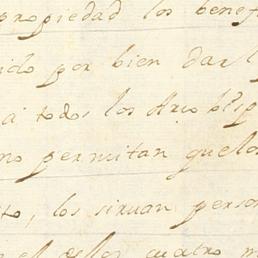 propiedad los benef
ido por bien dar l
a todos los Arzobisp
no permitan que los
to, los siruan person
en el dellos quatro m